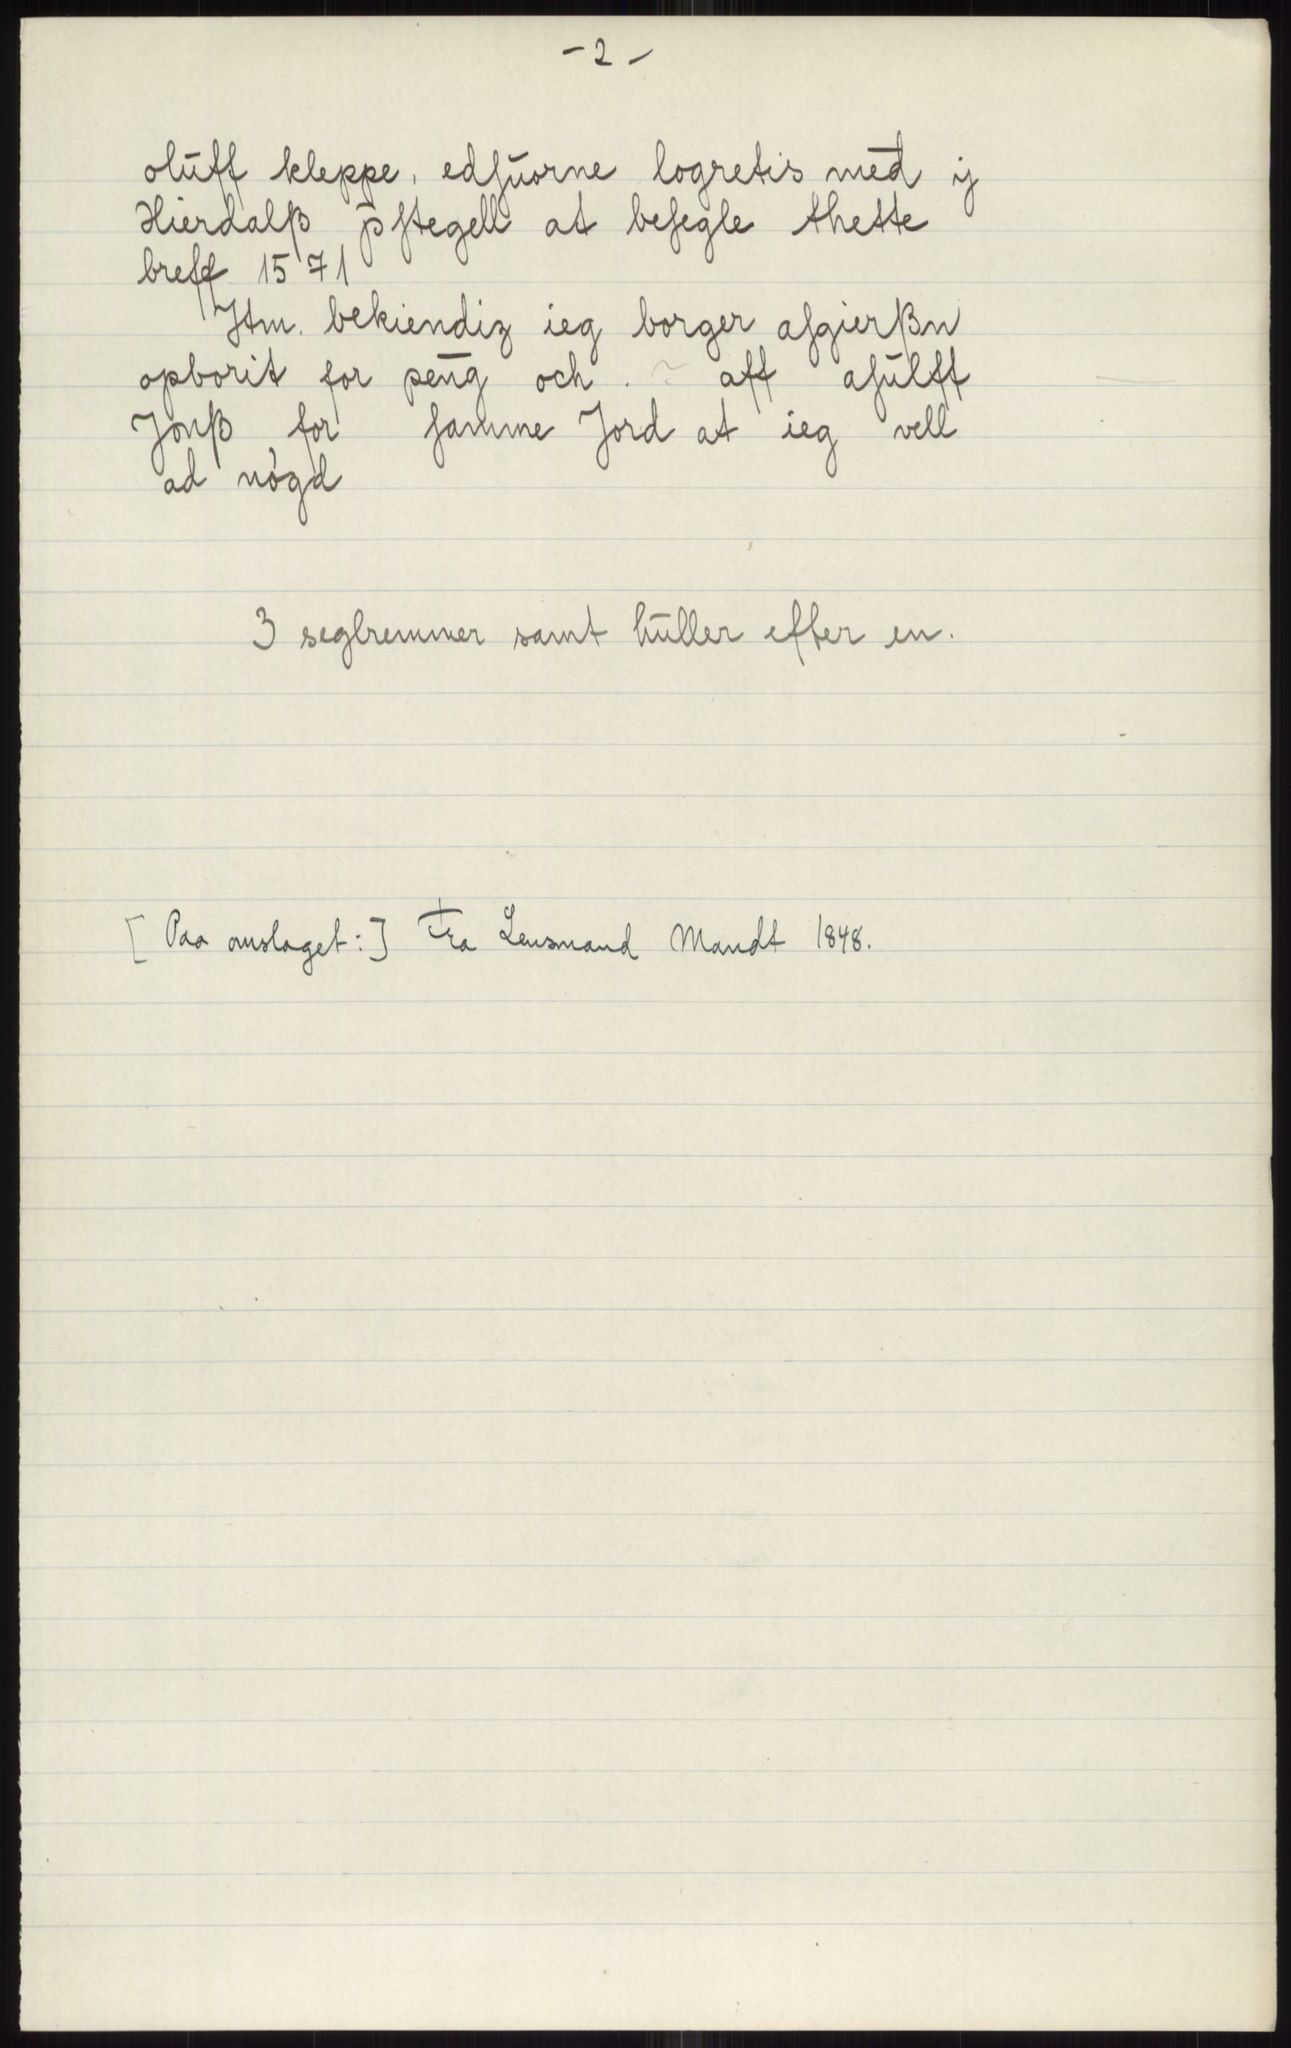 - 2 -
oluff kleppe, edſuorne logretis med ij
Hierdalß p̄ſtegell at beſegle thette
breff 1571
Jtm. bekiendiz ieg borger aſgierßn
opborit for peng och . ~ aff aſulff
Jonß for ſamme Jord at ieg vell
ad nøgd
3 seglremmer samt huller efter en.
[Paa omslaget:] Fra Lensmand Mandt 1848.